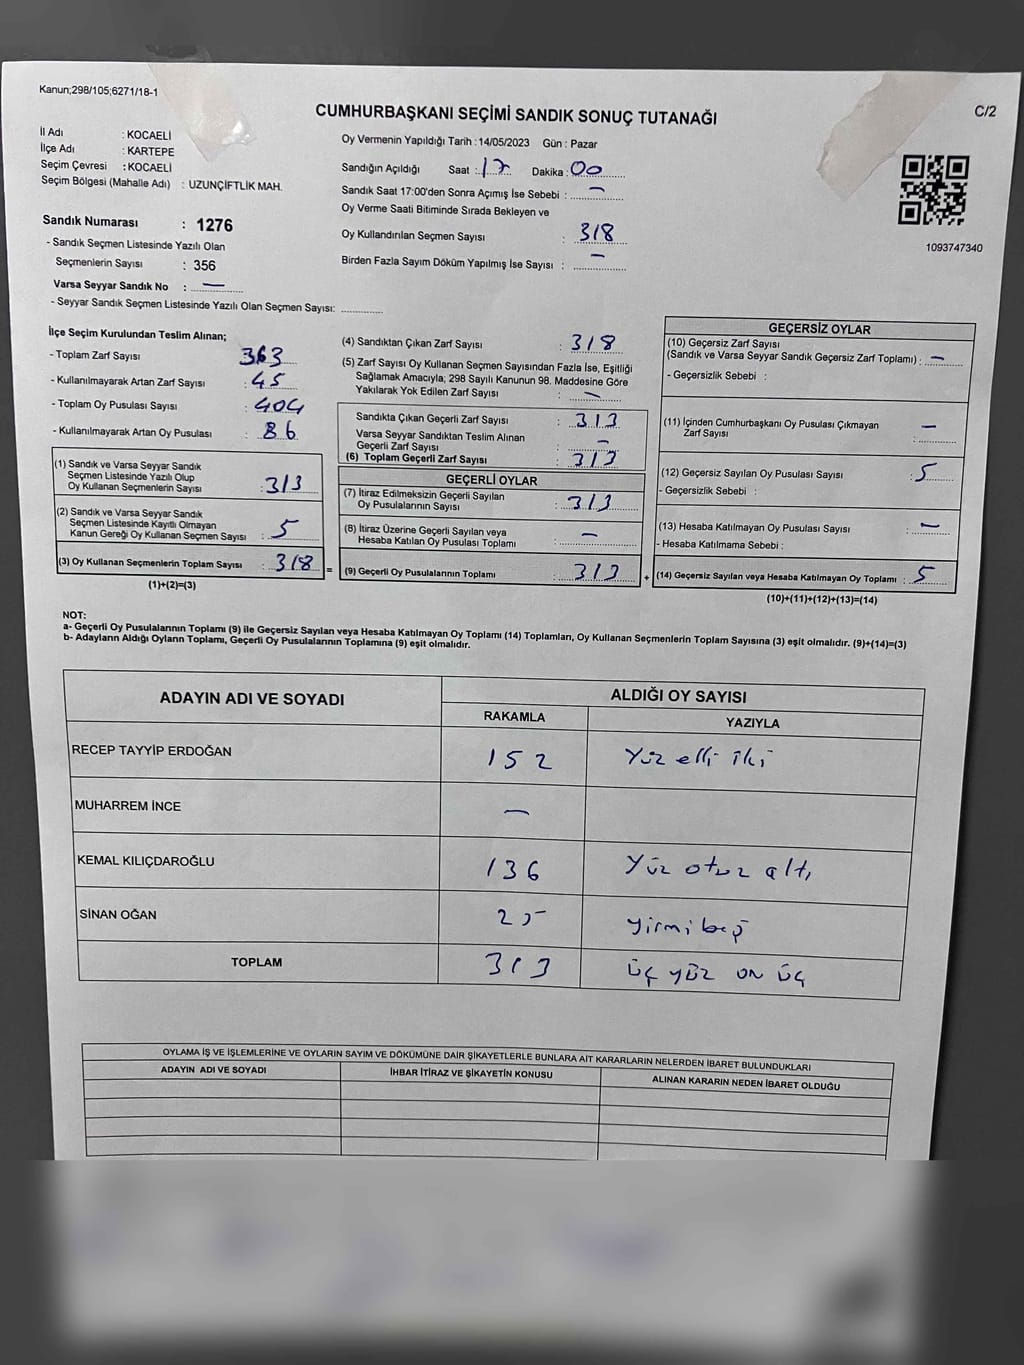 Kanun;298/105;6271/18-1
C/2
CUMHURBAŞKANI SEÇİMİ SANDIK SONUÇ TUTANAĞI
İl Adı : KOCAELİ
İlçe Adı : KARTEPE
Seçim Çevresi : KOCAELİ
Seçim Bölgesi (Mahalle Adı) : UZUNÇİFTLİK MAH.
Sandık Numarası : 1276
- Sandık Seçmen Listesinde Yazılı Olan
Seçmenlerin Sayısı : 356
Varsa Seyyar Sandık No : —
- Seyyar Sandık Seçmen Listesinde Yazılı Olan Seçmen Sayısı: ............
Oy Vermenin Yapıldığı Tarih : 14/05/2023 Gün : Pazar
Sandığın Açıldığı Saat : 17 Dakika : 00
Sandık Saat 17:00'den Sonra Açımış İse Sebebi : —
Oy Verme Saati Bitiminde Sırada Bekleyen ve
Oy Kullandırılan Seçmen Sayısı : 318
Birden Fazla Sayım Döküm Yapılmış İse Sayısı : —
1093747340
İlçe Seçim Kurulundan Teslim Alınan;
- Toplam Zarf Sayısı 363
- Kullanılmayarak Artan Zarf Sayısı : 45
- Toplam Oy Pusulası Sayısı : 404
- Kullanılmayarak Artan Oy Pusulası : 86
(1) Sandık ve Varsa Seyyar Sandık
Seçmen Listesinde Yazılı Olup
Oy Kullanan Seçmenlerin Sayısı : 313
(2) Sandık ve Varsa Seyyar Sandık
Seçmen Listesinde Kayıtlı Olmayan
Kanun Gereği Oy Kullanan Seçmen Sayısı : 5
(3) Oy Kullanan Seçmenlerin Toplam Sayısı : 318 =
(1)+(2)=(3)
(4) Sandıktan Çıkan Zarf Sayısı : 318
(5) Zarf Sayısı Oy Kullanan Seçmen Sayısından Fazla İse, Eşitliği
Sağlamak Amacıyla; 298 Sayılı Kanunun 98. Maddesine Göre
Yakılarak Yok Edilen Zarf Sayısı : —
Sandıkta Çıkan Geçerli Zarf Sayısı : 313
Varsa Seyyar Sandıktan Teslim Alınan
Geçerli Zarf Sayısı : —
(6) Toplam Geçerli Zarf Sayısı : 313
GEÇERLİ OYLAR
(7) İtiraz Edilmeksizin Geçerli Sayılan
Oy Pusulalarının Sayısı : 313
(8) İtiraz Üzerine Geçerli Sayılan veya
Hesaba Katılan Oy Pusulası Toplamı : —
(9) Geçerli Oy Pusulalarının Toplamı : 313 +
GEÇERSİZ OYLAR
(10) Geçersiz Zarf Sayısı
(Sandık ve Varsa Seyyar Sandık Geçersiz Zarf Toplamı) : —
- Geçersizlik Sebebi :
(11) İçinden Cumhurbaşkanı Oy Pusulası Çıkmayan
Zarf Sayısı : —
(12) Geçersiz Sayılan Oy Pusulası Sayısı : 5
- Geçersizlik Sebebi :
(13) Hesaba Katılmayan Oy Pusulası Sayısı : —
- Hesaba Katılmama Sebebi :
(14) Geçersiz Sayılan veya Hesaba Katılmayan Oy Toplamı : 5
(10)+(11)+(12)+(13)=(14)
NOT:
a- Geçerli Oy Pusulalarının Toplamı (9) ile Geçersiz Sayılan veya Hesaba Katılmayan Oy Toplamı (14) Toplamları, Oy Kullanan Seçmenlerin Toplam Sayısına (3) eşit olmalıdır. (9)+(14)=(3)
b- Adayların Aldığı Oyların Toplamı, Geçerli Oy Pusulalarının Toplamına (9) eşit olmalıdır.
ADAYIN ADI VE SOYADI ALDIĞI OY SAYISI
RAKAMLA YAZIYLA
RECEP TAYYİP ERDOĞAN 152 Yüz elli iki
MUHARREM İNCE —
KEMAL KILIÇDAROĞLU 136 Yüz otuz altı
SİNAN OĞAN 25 yirmi beş
TOPLAM 313 üç yüz on üç
OYLAMA İŞ VE İŞLEMLERİNE VE OYLARIN SAYIM VE DÖKÜMÜNE DAİR ŞİKAYETLERLE BUNLARA AİT KARARLARIN NELERDEN İBARET BULUNDUKLARI
ADAYIN ADI VE SOYADI İHBAR İTİRAZ VE ŞİKAYETİN KONUSU ALINAN KARARIN NEDEN İBARET OLDUĞU